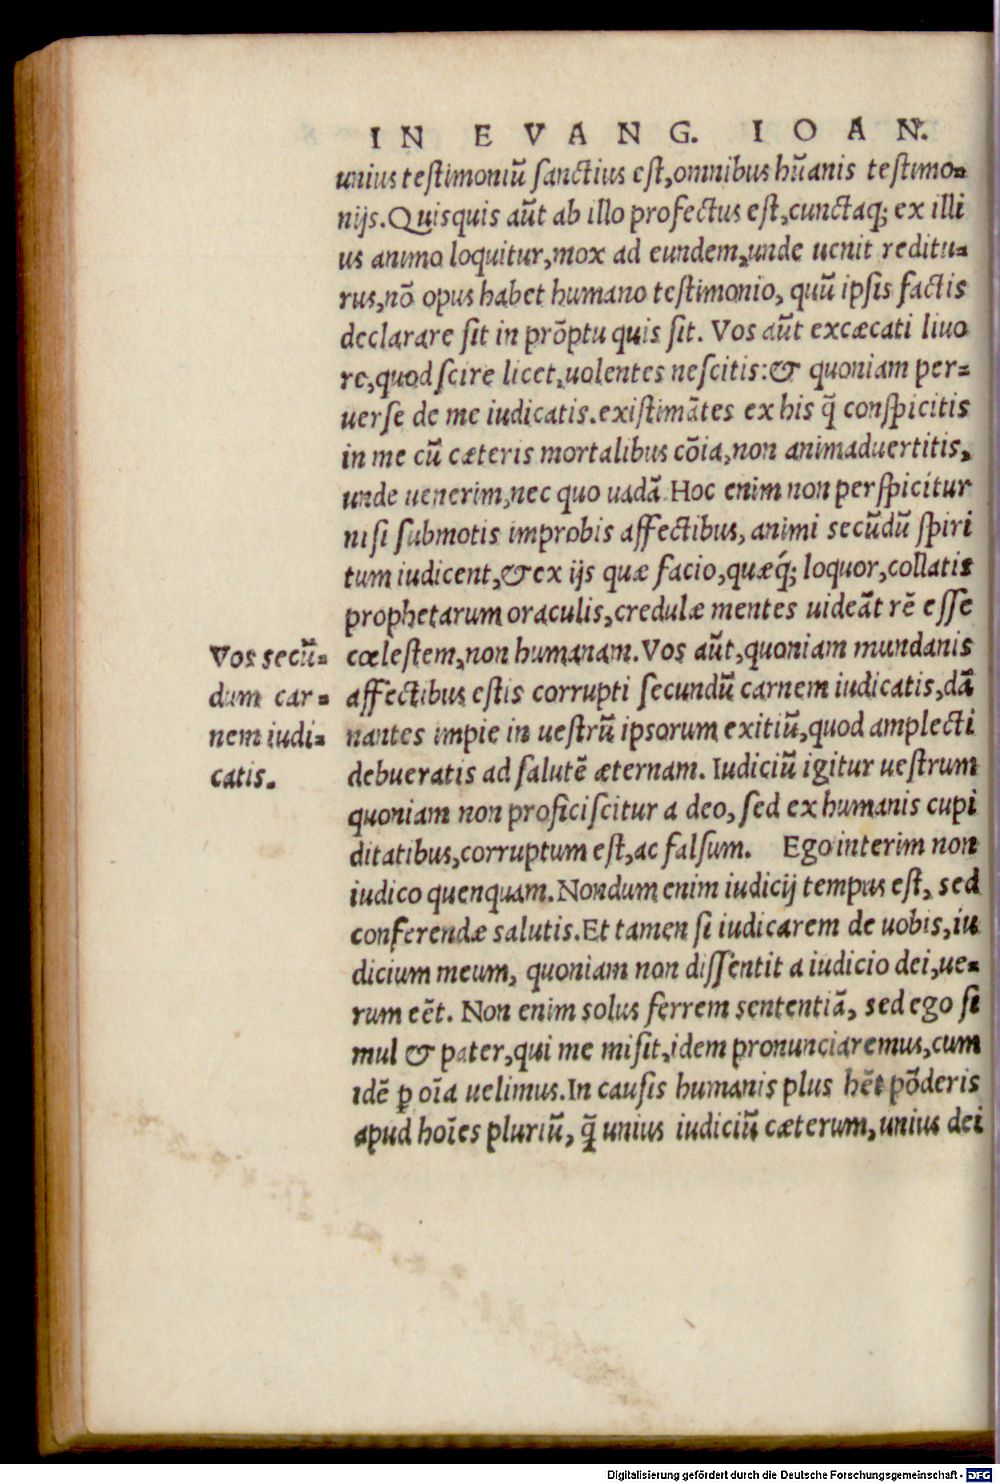 IN EVANG. IOAN.
unius testimoniũ sanctius est, omnibus hũanis testimo-
nijs. Quisquis aũt ab illo profectus est, cunctaq; ex illi
us animo loquitur, mox ad eundem, unde uenit reditu-
rus, nõ opus habet humano testimonio, quũ ipsis factis
declarare sit in prõptu quis sit. Vos aũt excæcati liuo
re, quod scire licet, uolentes nescitis: & quoniam per-
uerse de me iudicatis. existimãtes ex his q̃ conspicitis
in me cũ cæteris mortalibus cõia, non animaduertitis,
unde uenerim, nec quo uadã. Hoc enim non perspicitur
nisi submotis improbis affectibus, animi secũdũ spiri
tum iudicent, & ex ijs quæ facio, quæq́; loquor, collatis
prophetarum oraculis, credulæ mentes uideãt rẽ esse
cœlestem, non humanam. Vos aũt, quoniam mundanis
affectibus estis corrupti secundũ carnem iudicatis, dã
nantes impie in uestrũ ipsorum exitiũ, quod amplecti
debueratis ad salutẽ æternam. Iudiciũ igitur uestrum
quoniam non proficiscitur a deo, sed ex humanis cupi
ditatibus, corruptum est, ac falsum. Ego interim non
iudico quenquam. Nondum enim iudicij tempus est, sed
conferendæ salutis. Et tamen si iudicarem de uobis, iu
dicium meum, quoniam non dissentit a iudicio dei, ue-
rum eẽt. Non enim solus ferrem sententiã, sed ego si
mul & pater, qui me misit, idem pronunciaremus, cum
idẽ ꝑ oĩa uelimus. In causis humanis plus hẽt põderis
apud hoĩes pluriũ, q̃ unius iudiciũ cæterum, unius dei
Vos secũ-
dum car-
nem iudi-
catis.
Digitalisierung gefördert durch die Deutsche Forschungsgemeinschaft - DFG